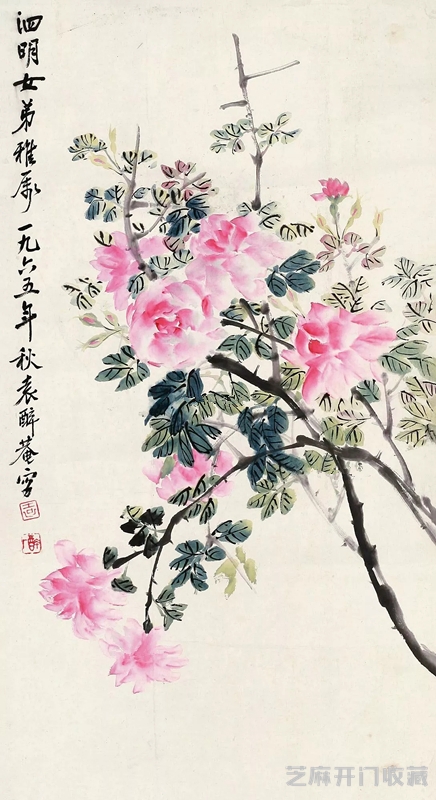 泗明女弟雅属一九六五年秋袁醉菴写
芝麻开门收藏